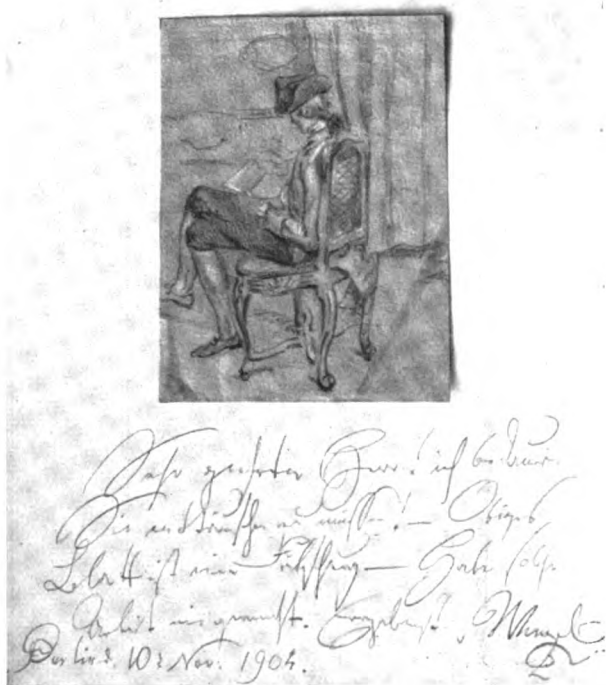 Sehr geehrter Herr! ich bedaure
Sie enttäuschen zu müssen! — Obiges
Blatt ist eine Fälschung — Habe solche
Arbeit nie gemacht. Ergebenst, Menzel
Berlin d. 10 Nov. 1904.